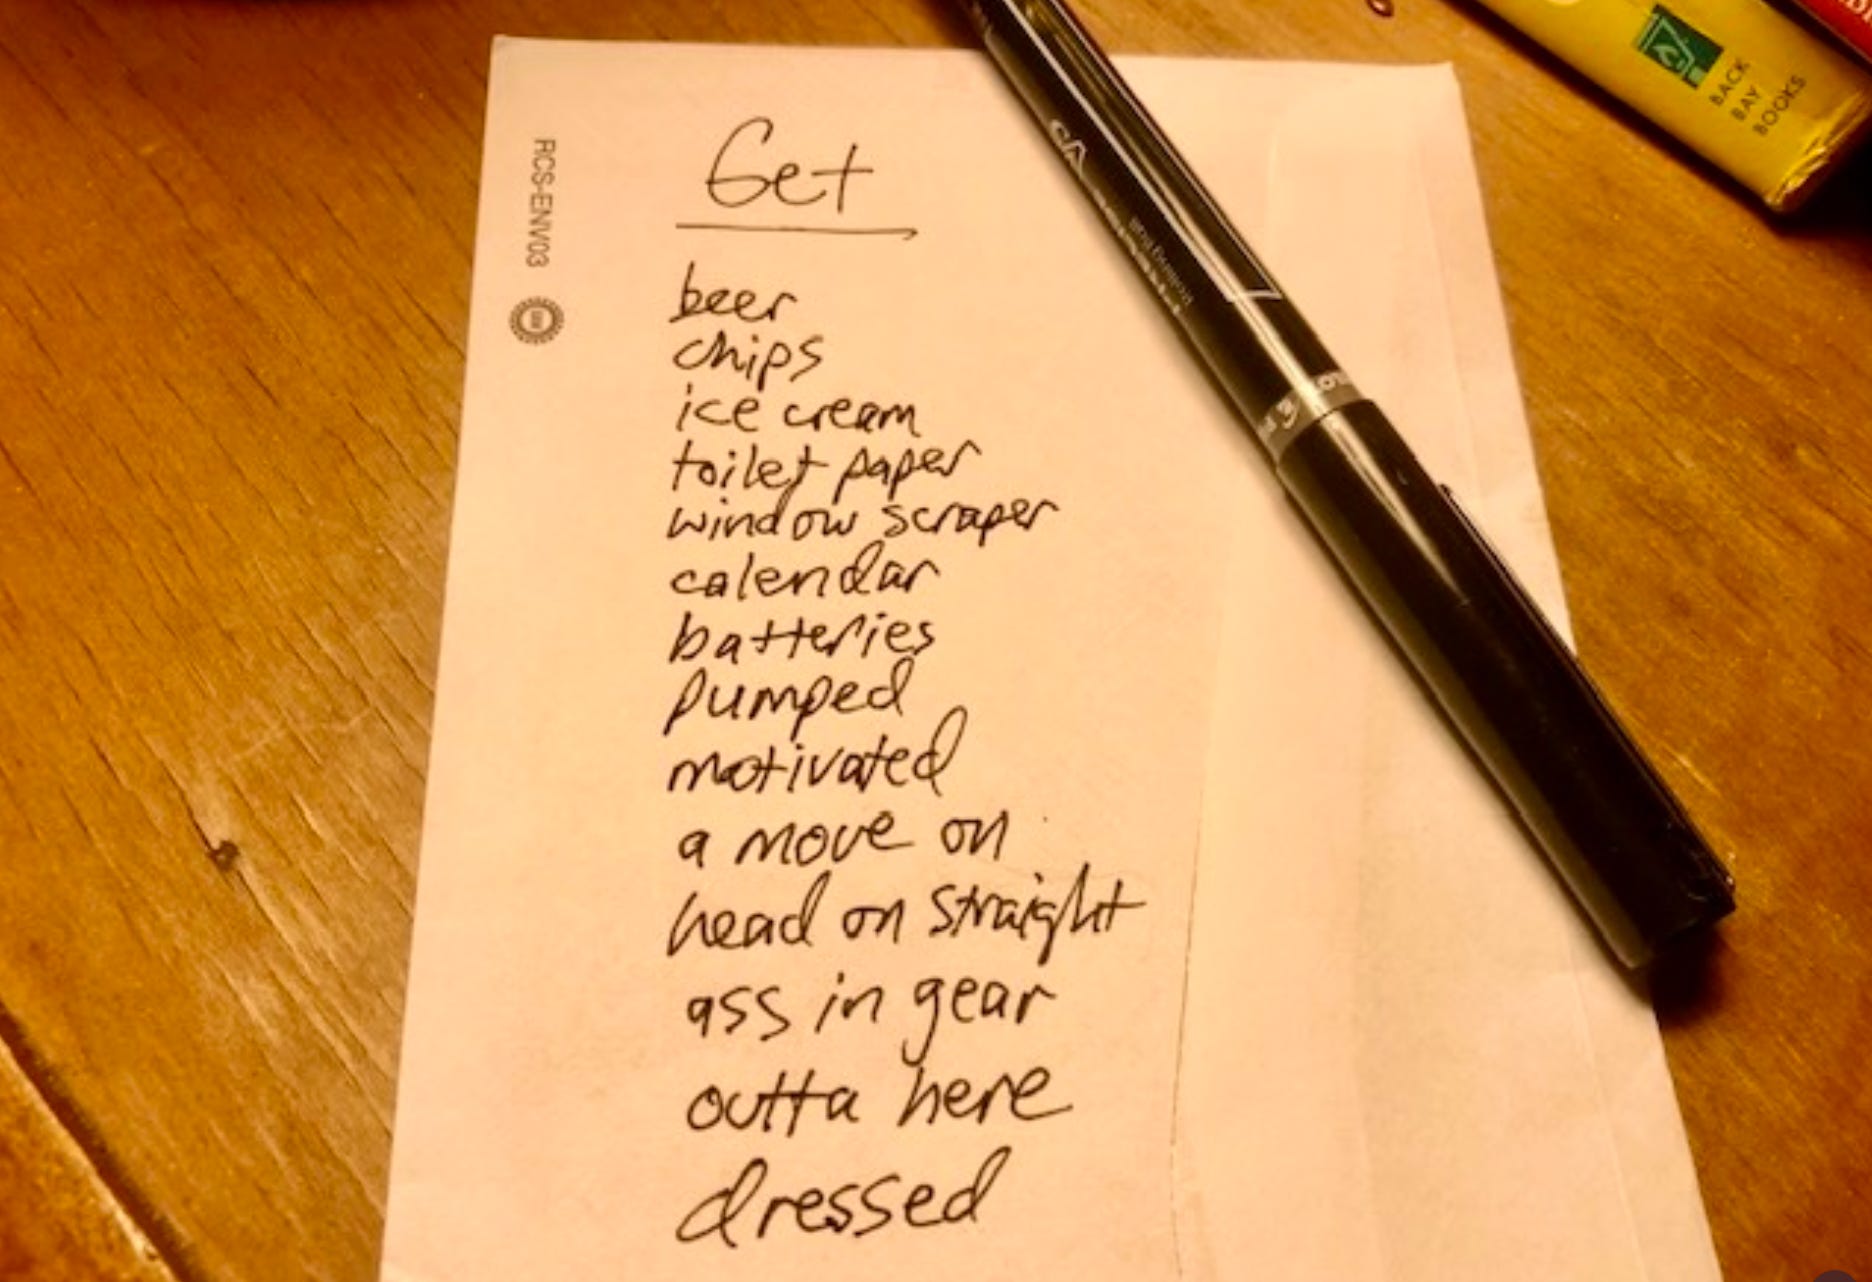 Get
beer
chips
ice cream
toilet paper
window scraper
calendar
batteries
pumped
motivated
a move on
head on straight
ass in gear
outta here
dressed
RCS-ENV03
BACK
BAY
BOOKS